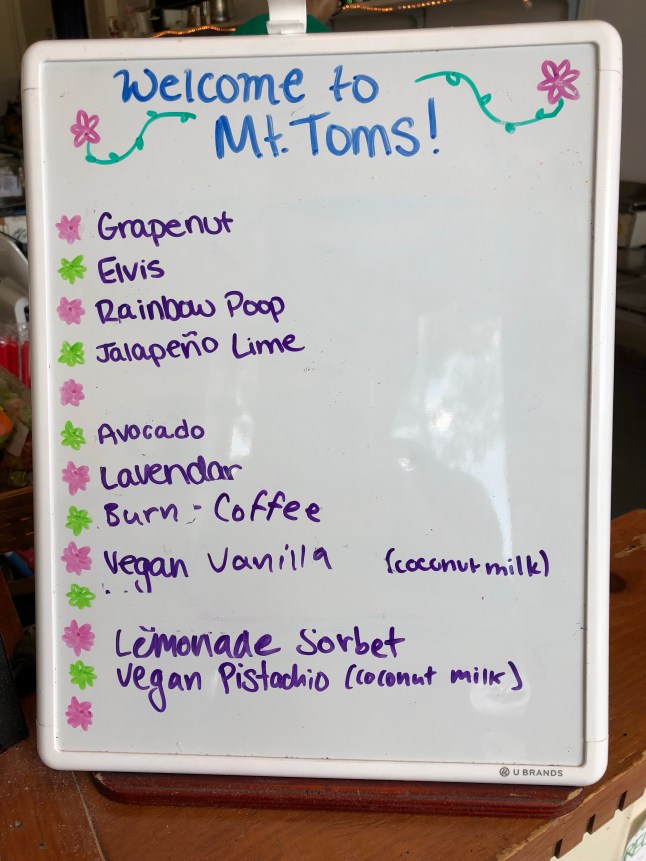 Welcome to
Mt. Toms!
Grapenut
Elvis
Rainbow Poop
Jalapeño Lime
Avocado
Lavendar
Burn - Coffee
Vegan Vanilla (coconut milk)
Lemonade Sorbet
Vegan Pistachio (coconut milk)
U BRANDS